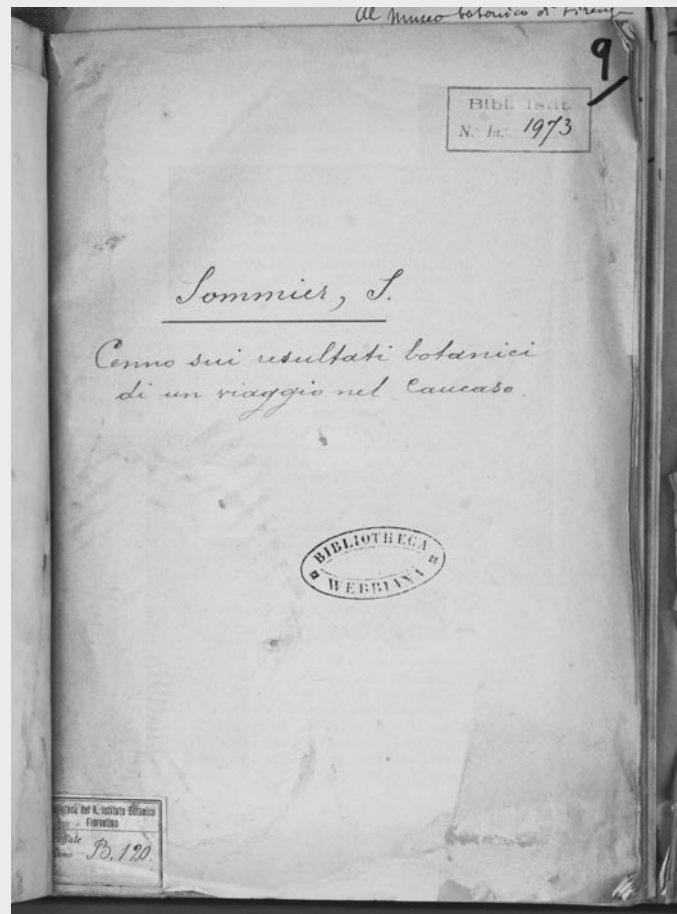 Al Museo botanico di Firenze
9
Bibl. Istit.
N. In. 1973
Sommier, S.
Cenno sui resultati botanici
di un viaggio nel Caucaso.
BIBLIOTHECA
WEBBIANA
del R. Istituto Botanico
Fiorentino
B. 120.